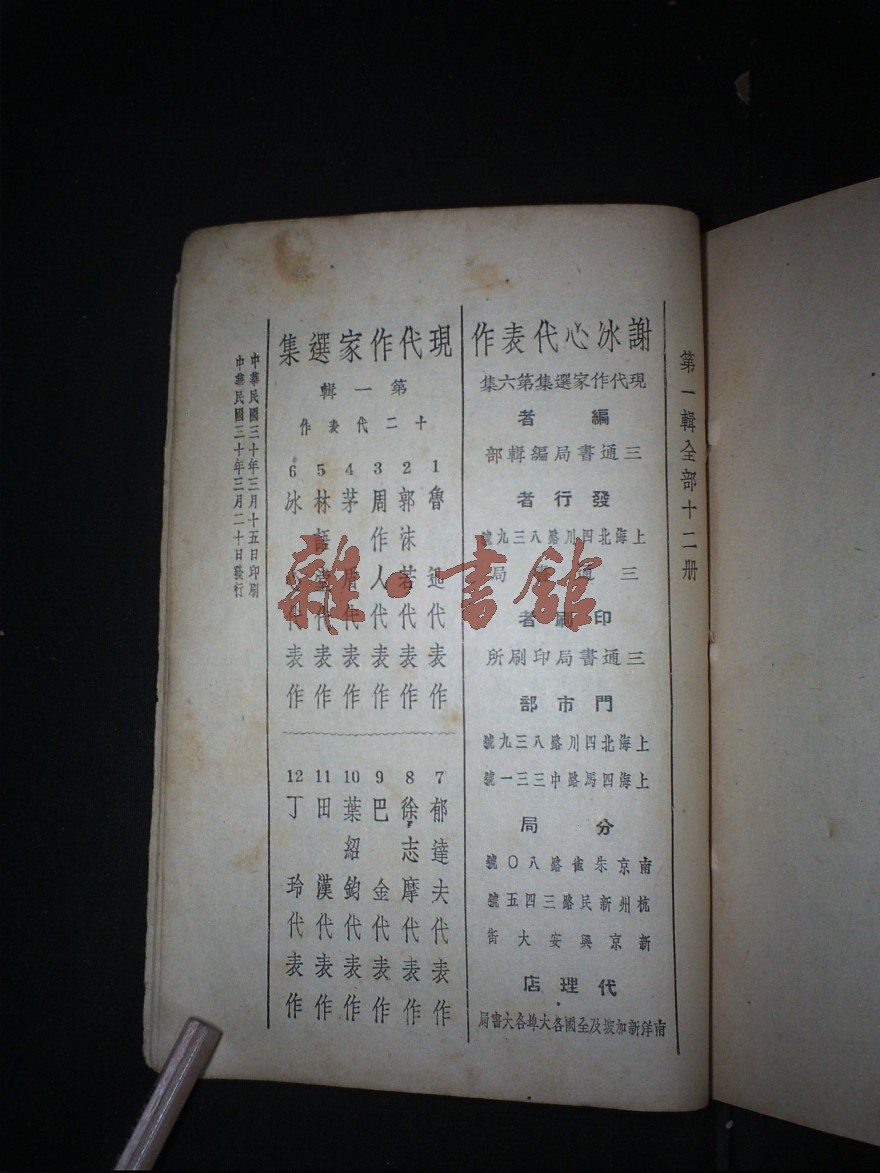 第一輯全部十二册
謝冰心代表作
現代作家選集第六集
編者
三通書局編輯部
發行者
上海北四川路八三九號
三通書局
印刷者
三通書局印刷所
門市部
上海北四川路八三九號
上海四馬路中三三一號
分局
南京朱雀路八〇號
杭州新民路三四五號
新京興安大街
代理店
南洋新加坡及全國各大埠各大書局
現代作家選集
第一輯
十二代表作
1 魯迅代表作
2 郭沫若代表作
3 周作人代表作
4 茅盾代表作
5 林語堂代表作
6 冰心代表作
7 郁達夫代表作
8 徐志摩代表作
9 巴金代表作
10 葉紹鈞代表作
11 田漢代表作
12 丁玲代表作
中華民國三十年三月十五日印刷
中華民國三十年三月二十日發行
雜·書館